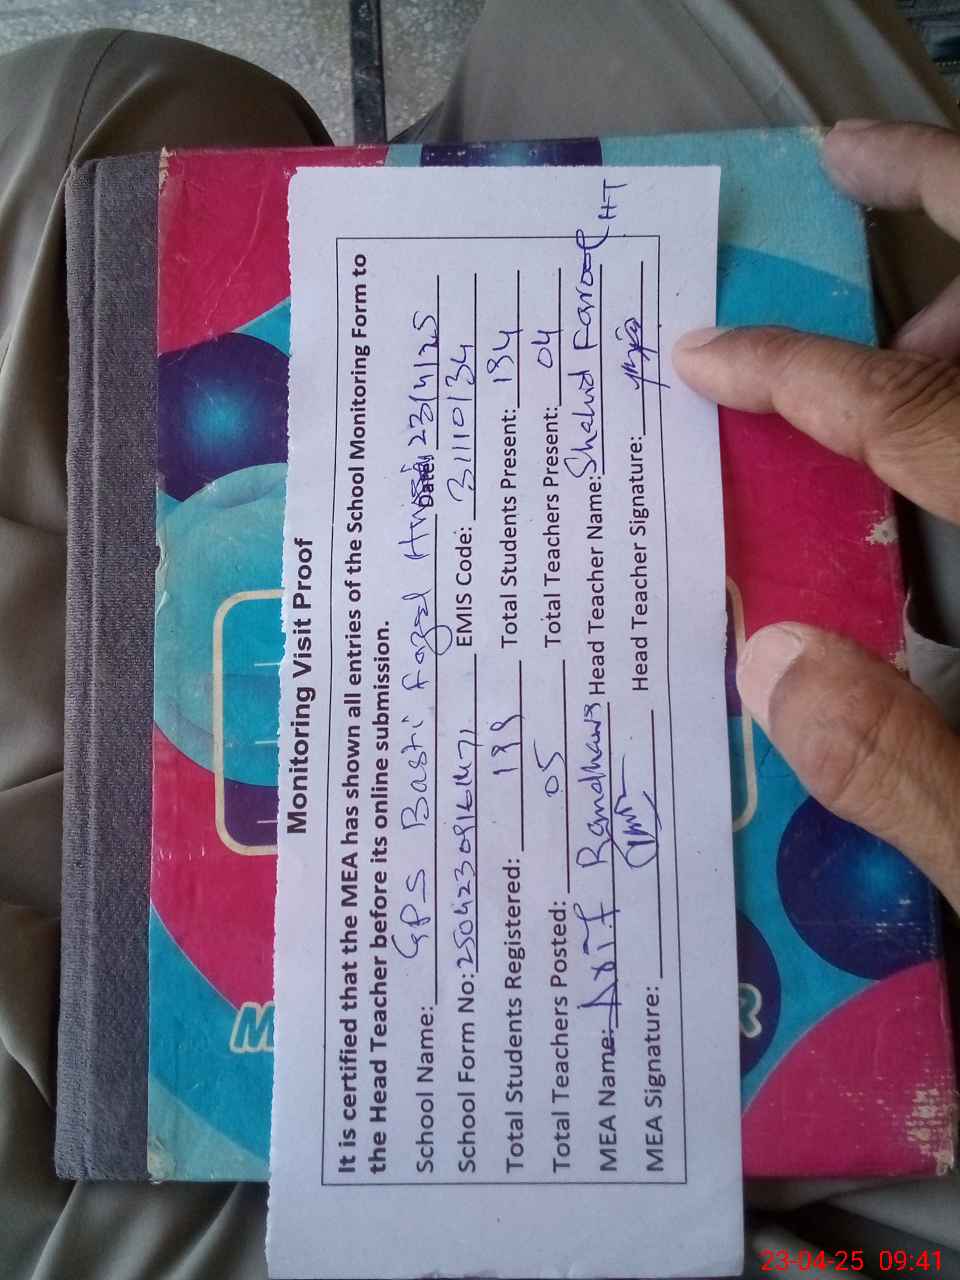 Monitoring Visit Proof
It is certified that the MEA has shown all entries of the School Monitoring Form to
the Head Teacher before its online submission.
School Name: GPS Basti Fazal Date: 23/4/25
School Form No: EMIS Code: 31110134
Total Students Registered: Total Students Present: 134
Total Teachers Posted: 05 Total Teachers Present: 04
MEA Name: Randhawa Head Teacher Name: Shahid Farooq HT
MEA Signature: Head Teacher Signature:
M
23-04-25 09:41